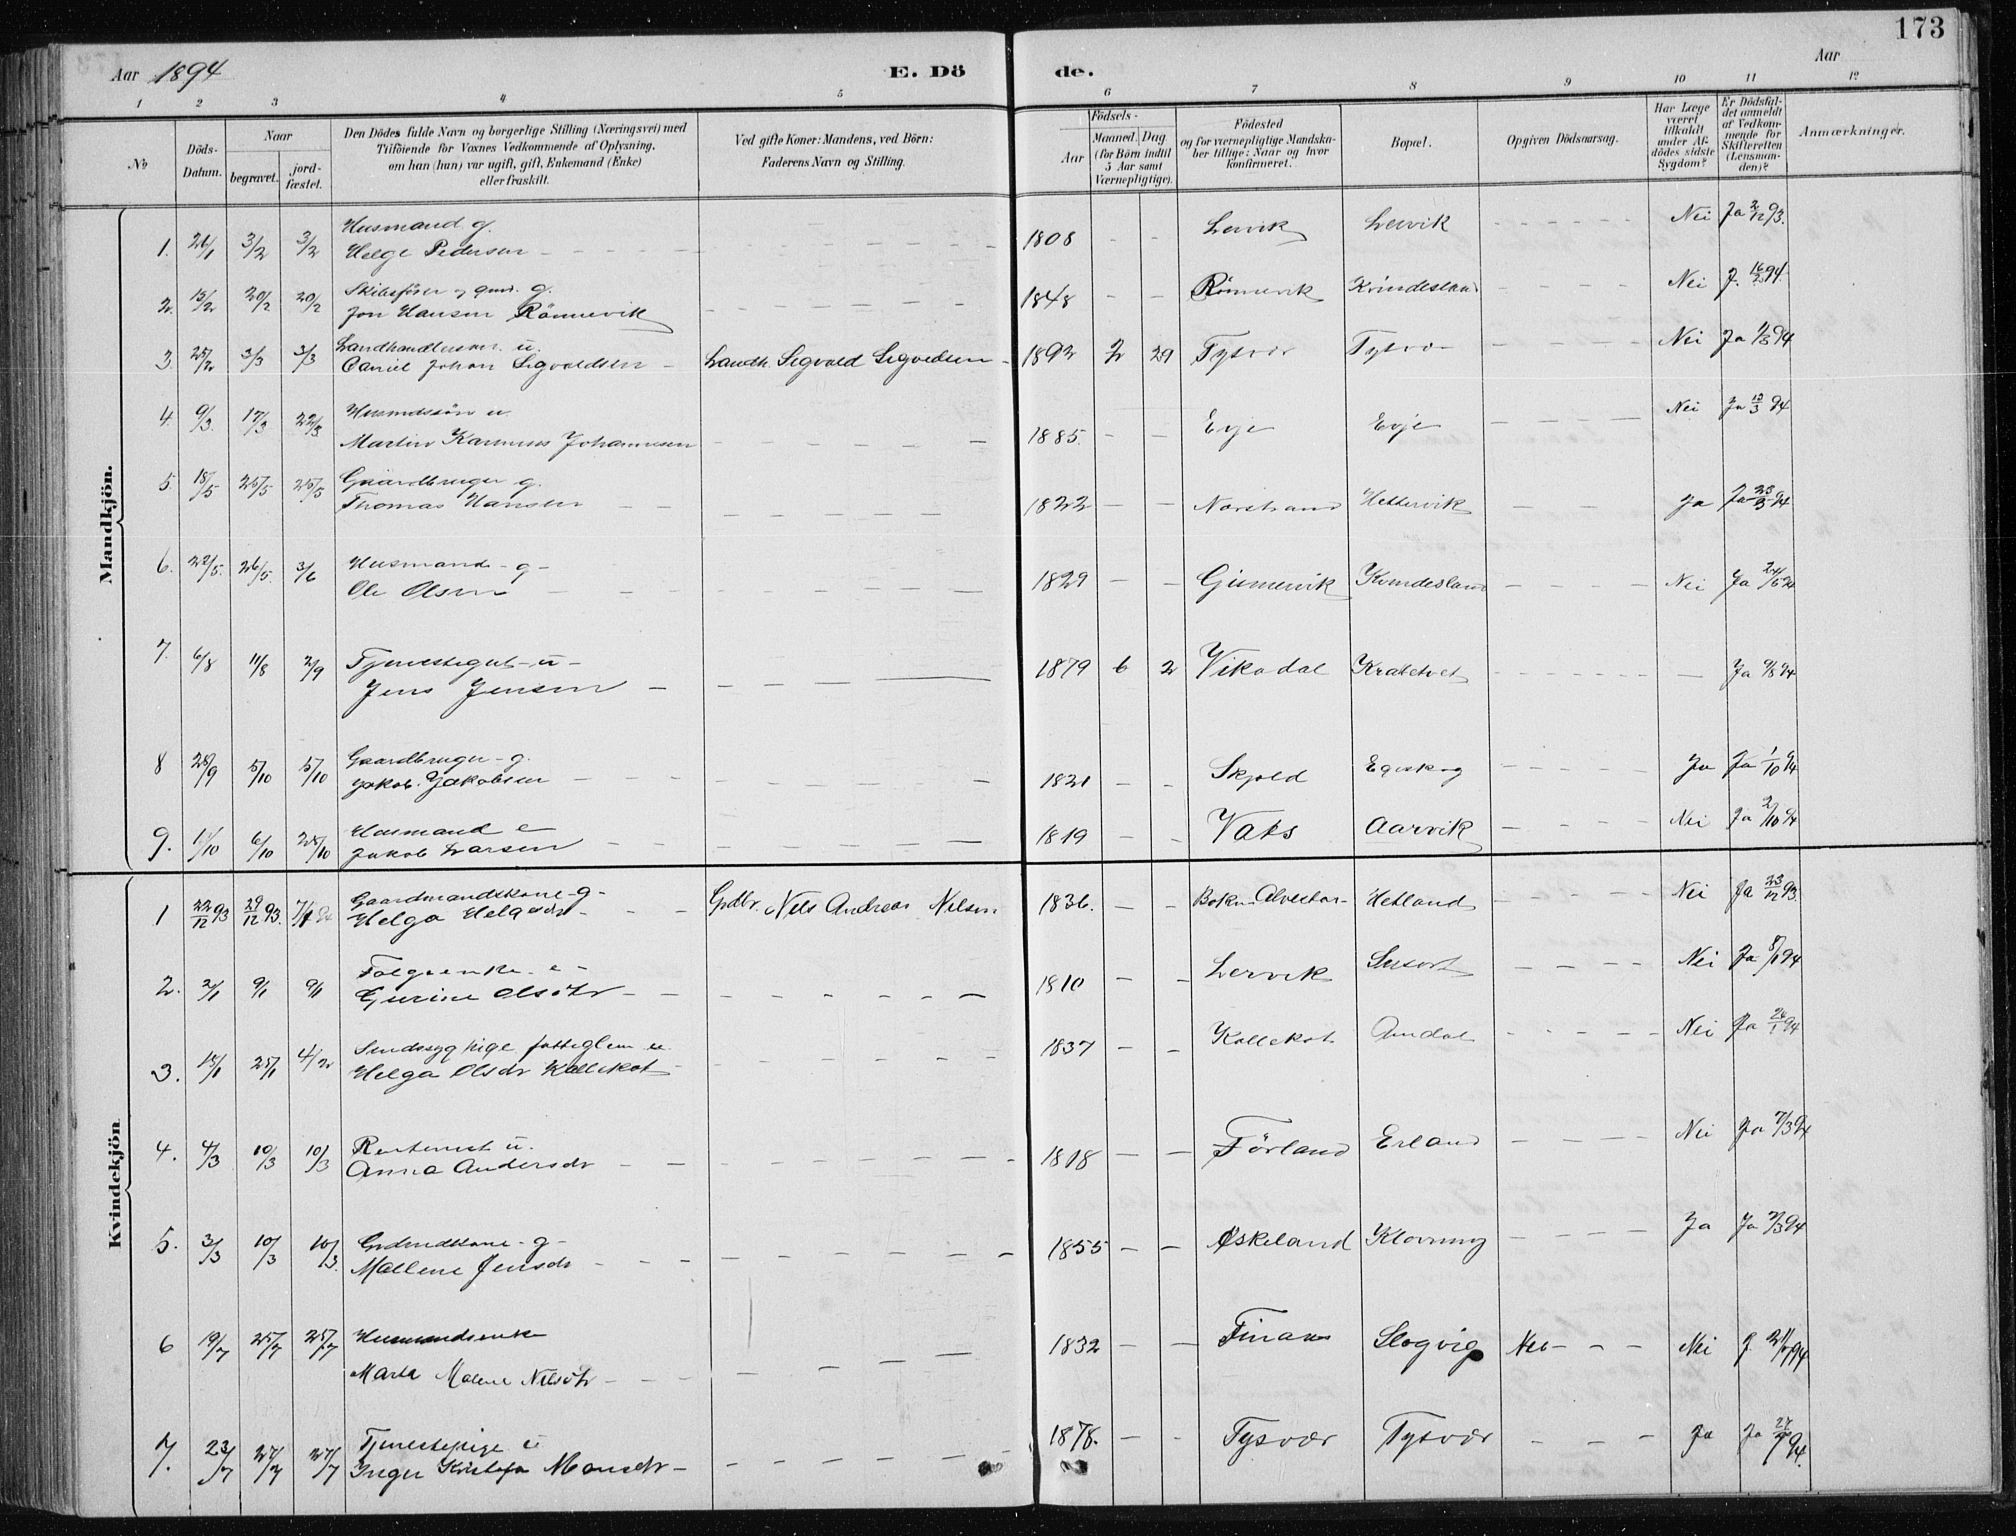 173
Aar 1894 E. Dö de. Aar
1 2 3 4 5 6 7 8 9 10 11 12
No
Döds-Datum.
Naar
begravet.
jord-fæstet.
Den Dödes fulde Navn og borgerlige Stilling (Næringsvei) med
Tilföiende for Voxnes Vedkommende af Oplysning,
om han (hun) var ugift, gift, Enkemand (Enke)
eller fraskilt.
Ved gifte Koner: Mandens, ved Börn:
Faderens Navn og Stilling.
Födsels-
Aar
Maaned. Dag
(for Börn indtil
5 Aar samt
Værnepligtige).
Födested
og for værnepligtige Mandska-
ber tillige: Naar og hvor
konfirmeret.
Bopæl.
Opgiven Dödsaarsag.
Har Læge
været
tilkaldt
under Af-
dödes sidste
Sygdom?
Er Dödsfal-
det anmeldt
af Vedkom-
mende for
Skifteretten
(Lensman-
den)?
Anmærkninger.
Mandkjön.
Husmand g.
1. 26/1 3/2 3/2 Helge Pedersen 1808 - - Lervik Lervik Nei Ja 2/12 93.
Skibsfører g.
2. 15/2 20/2 20/2 Jon Hansen Rönnevik 1848 - - Rönnevik Kvindesland Nei J. 16/2 94.
u.
3. 25/2 3/3 3/3 Daniel Johan Sigvaldsen Landh. Sigvald Sigvadsen 1892 2 29 Tysvær Tysvær Nei Ja 1/3 94
Husmdssön u.
4. 9/3. 17/3 22/3 Martin Rasmus Johannesen 1885. - - Evje Evje Nei Ja 12/3 94
Gaardbruger g.
5. 18/5 25/5 25/5 Thomas Hansen 1822 - - Narstrand Hettervik Ja Ja 94
Husmand - g -
6. 22/5. 26/5. 3/6 Ole Olsen 1829 - - Gismervik Kvindesland Nei Ja 24/5 94
Tjenestegut - u -
7. 6/8 11/8 2/9 Jens Jensen 1879 6 2 Vikedal Krabetvet - Ja 9/8 94
Gaardbruger - g.
8 28/9 5/10 5/10 Jakob Jakobsen 1821 - - Skjold Egeskog Ja Ja 1/10 94
Husmand e
9. 1/10 6/10 25/10 Jakob Larsen 1819 - - Vats Aarvik Nei Ja 2/10 94
Kvindekjön
Gaardmandskone - g -
1 22/12 93 29/12 93. 7/1 94 Helga Helgesdr Grdbr. Nils Andreas Nilsen 1836. - - Bokn Hetland Nei Ja 23/12 93.
Folgeenke - e -
2. 2/1 9/1 9/1 Gurine Olsdtr 1810 - - Lervik Susort Nei Ja 8/1 94
Sindssyg pige fattiglem u.
3. 18/1 25/1 4/2 Helga Olsdr Kallekot 1837 - - Kallekot Amdal Nei Ja 24/1 94
u.
4. 4/3 10/3 10/3 Anna Andersdr 1818 - - Förland Erland Nei Ja 7/3 94
Grdmdkone - g -
5. 3/3 10/3 10/3. Mallene Jensdr 1855 - - Øskeland Klovning Ja Ja 7/3 94
Husmandsenke
6 19/7 25/7 25/7 Marta Malene Nilsdtr 1832 - - Finnøs Slogvig Nei J. 21/7 94
Tjenestepige u
7. 23/7 27/7 27/7 Inger Kristofa Monsdr 1878. - - Tysvær Tysvær Ja Ja 27/7 94.